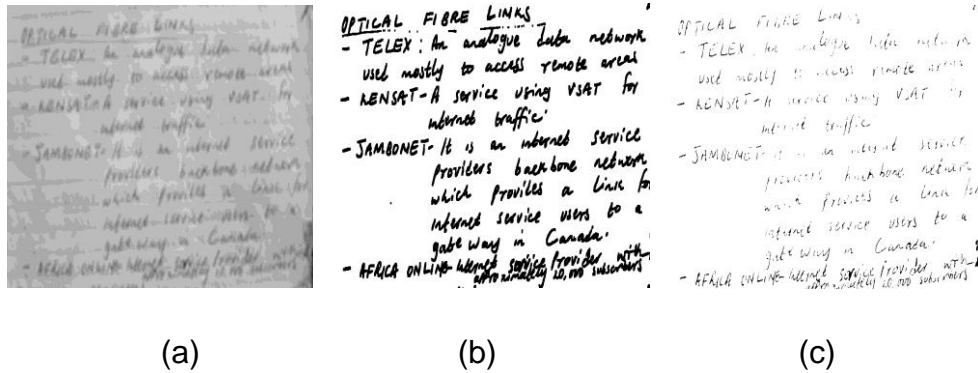 OPTICAL FIBRE LINKS
- TELEX: An analogue data network
used mostly to access remote areas
- KENSAT- A service using VSAT for
internet traffic.
- JAMBONET- It is an internet service
providers backbone network
which provides a link for
internet service users to a
gate way in Canada.
- AFRICA ONLINE- Internet service Provider with
approximately subscribers
OPTICAL FIBRE LINKS
- TELEX: An analogue data network
used mostly to access remote areas
- KENSAT- A service using VSAT for
internet traffic.
- JAMBONET- It is an internet service
Providers backbone network
which Provides a Link for
internet service users to a
gate way in Canada.
- AFRICA ONLINE- Internet service Provider with
approximately subscribers
OPTICAL FIBRE LINKS
- TELEX: An analogue data network
used mostly to access remote areas
- KENSAT- A service using VSAT for
internet traffic
- JAMBONET- It is an internet service
providers backbone network
which Provides a Link for
internet service users to a
gate way in Canada.
- AFRICA ONLINE- Internet service Provider with
approximately subscribers
(a) (b) (c)